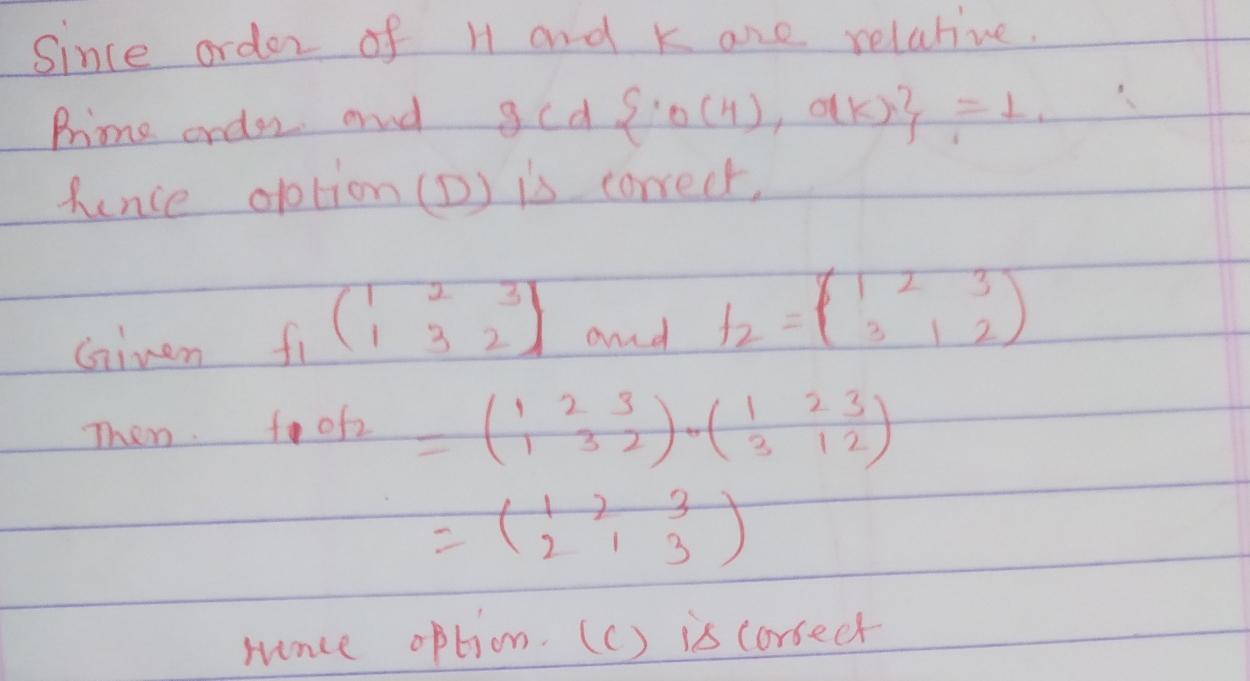 Since order of H and K are relative.
Prime order and gcd {o(H), o(K)} = 1.
hence option (D) is correct.
Given f1 (1 2 3 / 1 3 2) and f2 = (1 2 3 / 3 1 2)
Then f1 o f2 = (1 2 3 / 1 3 2) · (1 2 3 / 3 1 2)
= (1 2 3 / 2 1 3)
Hence option. (C) is correct